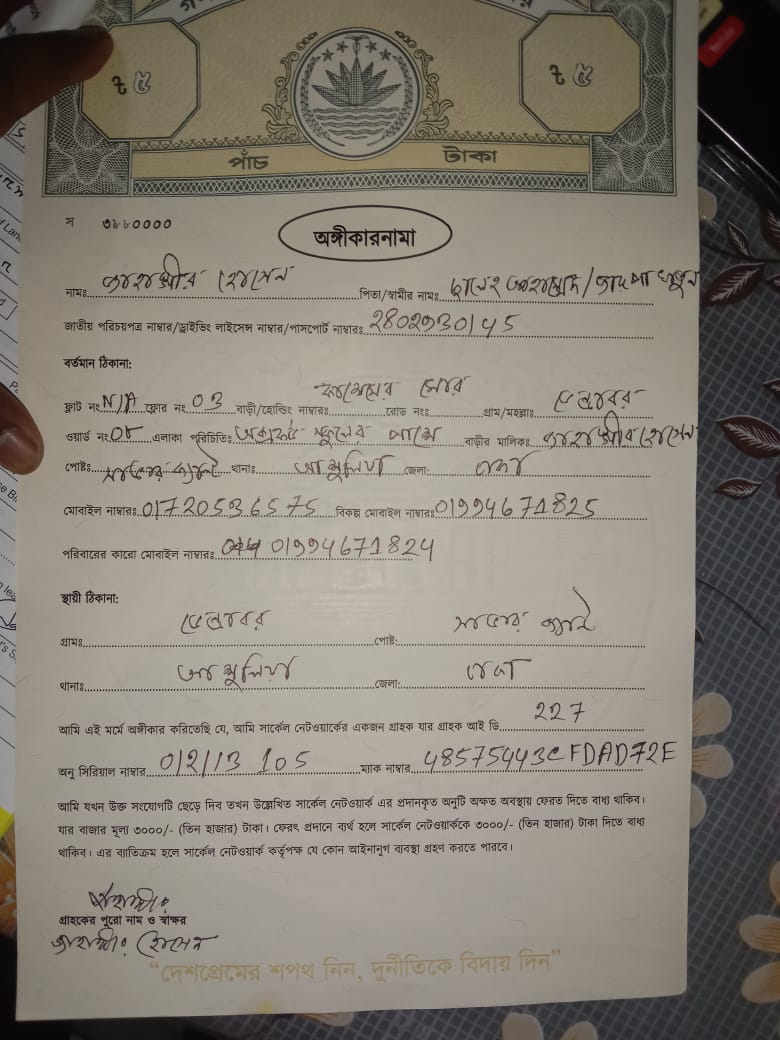 ৳ ৫ ৳ ৫
পাঁচ টাকা
স ৩৮৮০০০০
অঙ্গীকারনামা
নামঃ জাহাঙ্গীর হোসেন পিতা/স্বামীর নামঃ
জাতীয় পরিচয়পত্র নাম্বার/ড্রাইভিং লাইসেন্স নাম্বার/পাসপোর্ট নাম্বারঃ 2802930145
বর্তমান ঠিকানা:
ফ্লাট নংঃ N/A ফ্লোর নংঃ 03 বাড়ী/হোল্ডিং নাম্বারঃ রোড নংঃ গ্রাম/মহল্লাঃ
ওয়ার্ড নংঃ 08 এলাকা পরিচিতিঃ স্কুলের পাশে বাড়ীর মালিকঃ জাহাঙ্গীর হোসেন
পোষ্টঃ থানাঃ আশুলিয়া জেলা: ঢাকা
মোবাইল নাম্বারঃ 01720536575 বিকল্প মোবাইল নাম্বারঃ 01994671825
পরিবারের কারো মোবাইল নাম্বারঃ 01994671824
স্থায়ী ঠিকানা:
গ্রামঃ পোষ্ট:
থানাঃ আশুলিয়া জেলা: ঢাকা
আমি এই মর্মে অঙ্গীকার করিতেছি যে, আমি সার্কেল নেটওয়ার্কের একজন গ্রাহক যার গ্রাহক আই ডি 227
অনু সিরিয়াল নাম্বার 0/2/13 105 ম্যাক নাম্বার 48575443CFDAD72E
আমি যখন উক্ত সংযোগটি ছেড়ে দিব তখন উল্লেখিত সার্কেল নেটওয়ার্ক এর প্রদানকৃত অনুটি অক্ষত অবস্থায় ফেরত দিতে বাধ্য থাকিব।
যার বাজার মূল্য ৩০০০/- (তিন হাজার) টাকা। ফেরৎ প্রদানে ব্যর্থ হলে সার্কেল নেটওয়ার্ককে ৩০০০/- (তিন হাজার) টাকা দিতে বাধ্য
থাকিব। এর ব্যাতিক্রম হলে সার্কেল নেটওয়ার্ক কর্তৃপক্ষ যে কোন আইনানুগ ব্যবস্থা গ্রহণ করতে পারবে।
গ্রাহকের পুরো নাম ও স্বাক্ষর
জাহাঙ্গীর হোসেন
“দেশপ্রেমের শপথ নিন, দুর্নীতিকে বিদায় দিন”